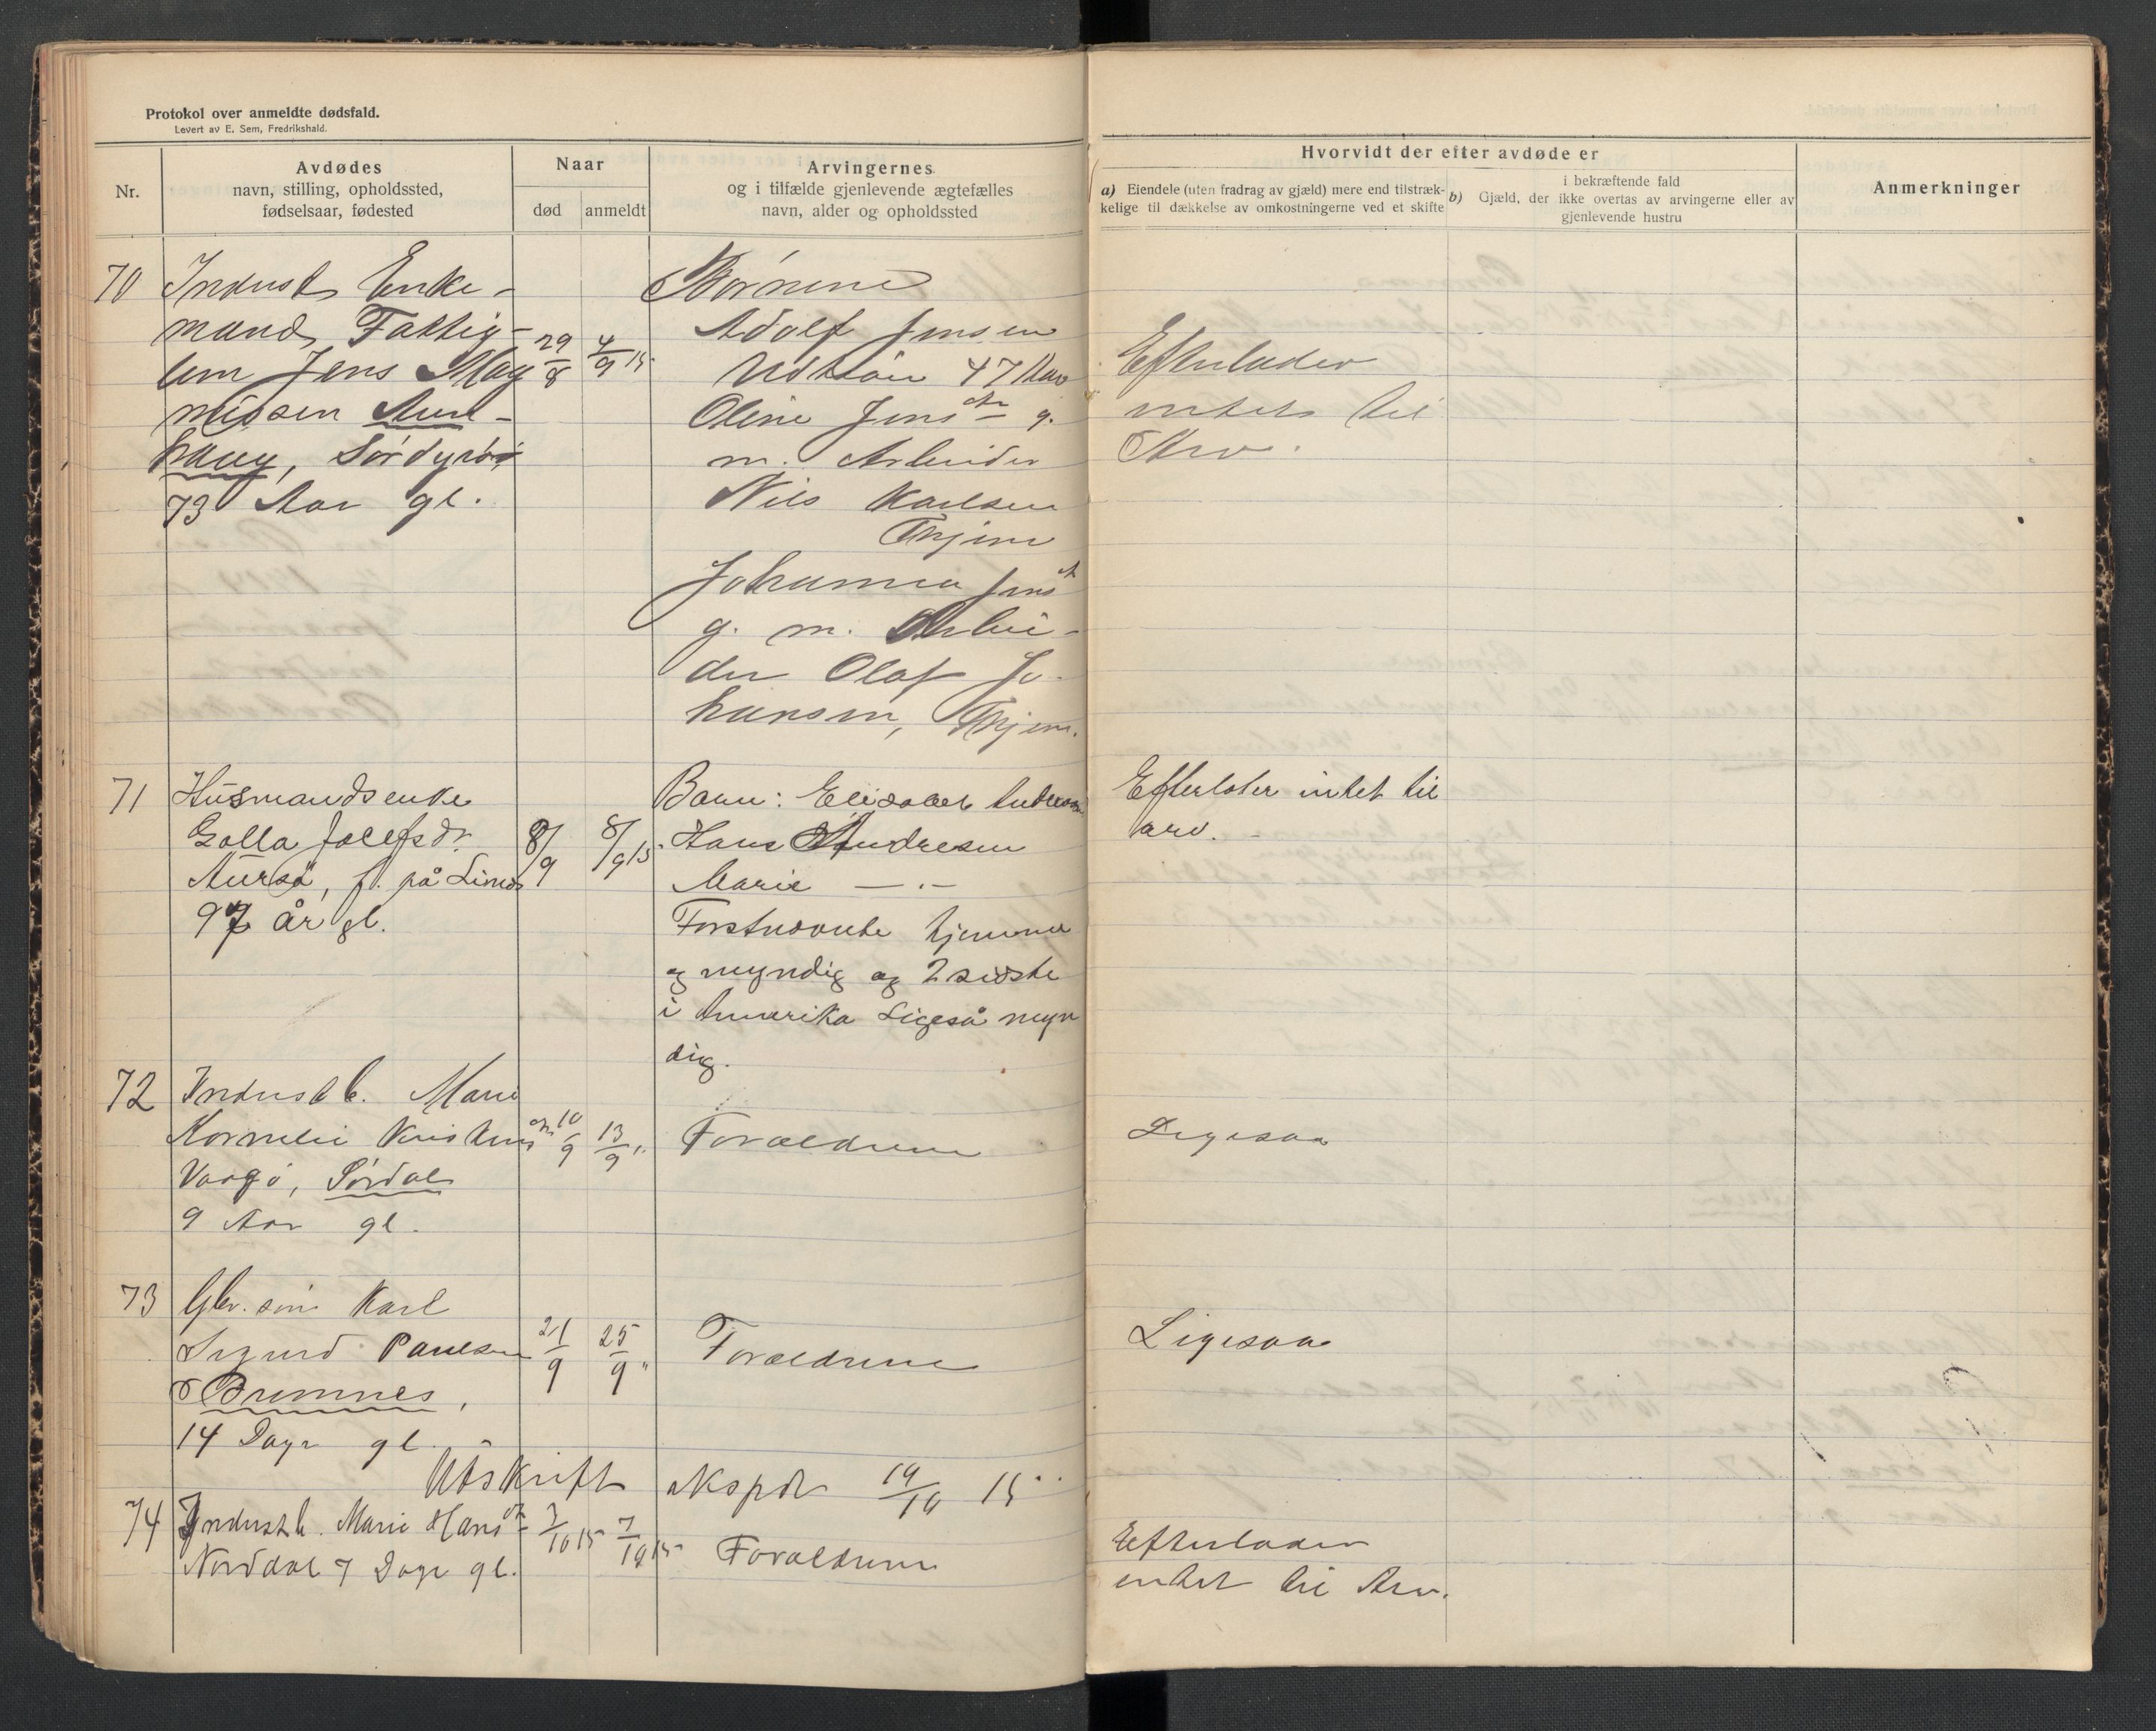 Protokol over anmeldte dødsfald.
Levert av E. Sem, Fredrikshald.
Nr.
Avdødes
navn, stilling, opholdssted,
fødselsaar, fødested
Naar
død
anmeldt
Arvingernes
og i tilfælde gjenlevende ægtefælles
navn, alder og opholdssted
Hvorvidt der efter avdøde er
a) Eiendele (uten fradrag av gjæld) mere end tilstræk-
kelige til dækkelse av omkostningerne ved et skifte
b) Gjæld, der ikke overtas av arvingerne eller av
i bekræftende fald
gjenlevende hustru
Anmerkninger
70
Indust Enke-
mand, Fattig-
lem Jens Mag
nussen Aur-
haug,
73 Aar gl.
29/8
4/9 15
Børnene
Adolf Jensen
47 Aar
Oline Jensdtr g.
m. Arbeider
Nils Karlsen
Johanna Jensdt
g. m. Arbei-
der Olaf Jo-
hansen,
Efterlader
intet til
Arv.
71
Husmandsenke
Golla Josefsdr.
f. på
97 år gl.
8/9
8/9 15
Barn: Elisabet Andresen
Hans Andresen
Marie — „ —
Forstnævnte hjemme
og myndig og 2 sidste
i Amerika Ligeså myn
dig.
Efterlater intet til
arv.
72
Indust b. Marie
Kornelie Kristens
Vaagø, Sørdal
9 Aar gl.
10/9
13/9 "
Forældrene
Ligesaa
73
Gbr. søn Karl
Sigurd Paulsen
Bremnes,
14 Dage gl.
21/9
25/9 "
Forældrene
Ligesaa
Utskrift ekspdt 19/10 15
74
Indust b. Marie Hansdt
Nordal 7 Dage gl.
3/10 15
7/10 15
Forældrene
Efterlader
intet til Arv.